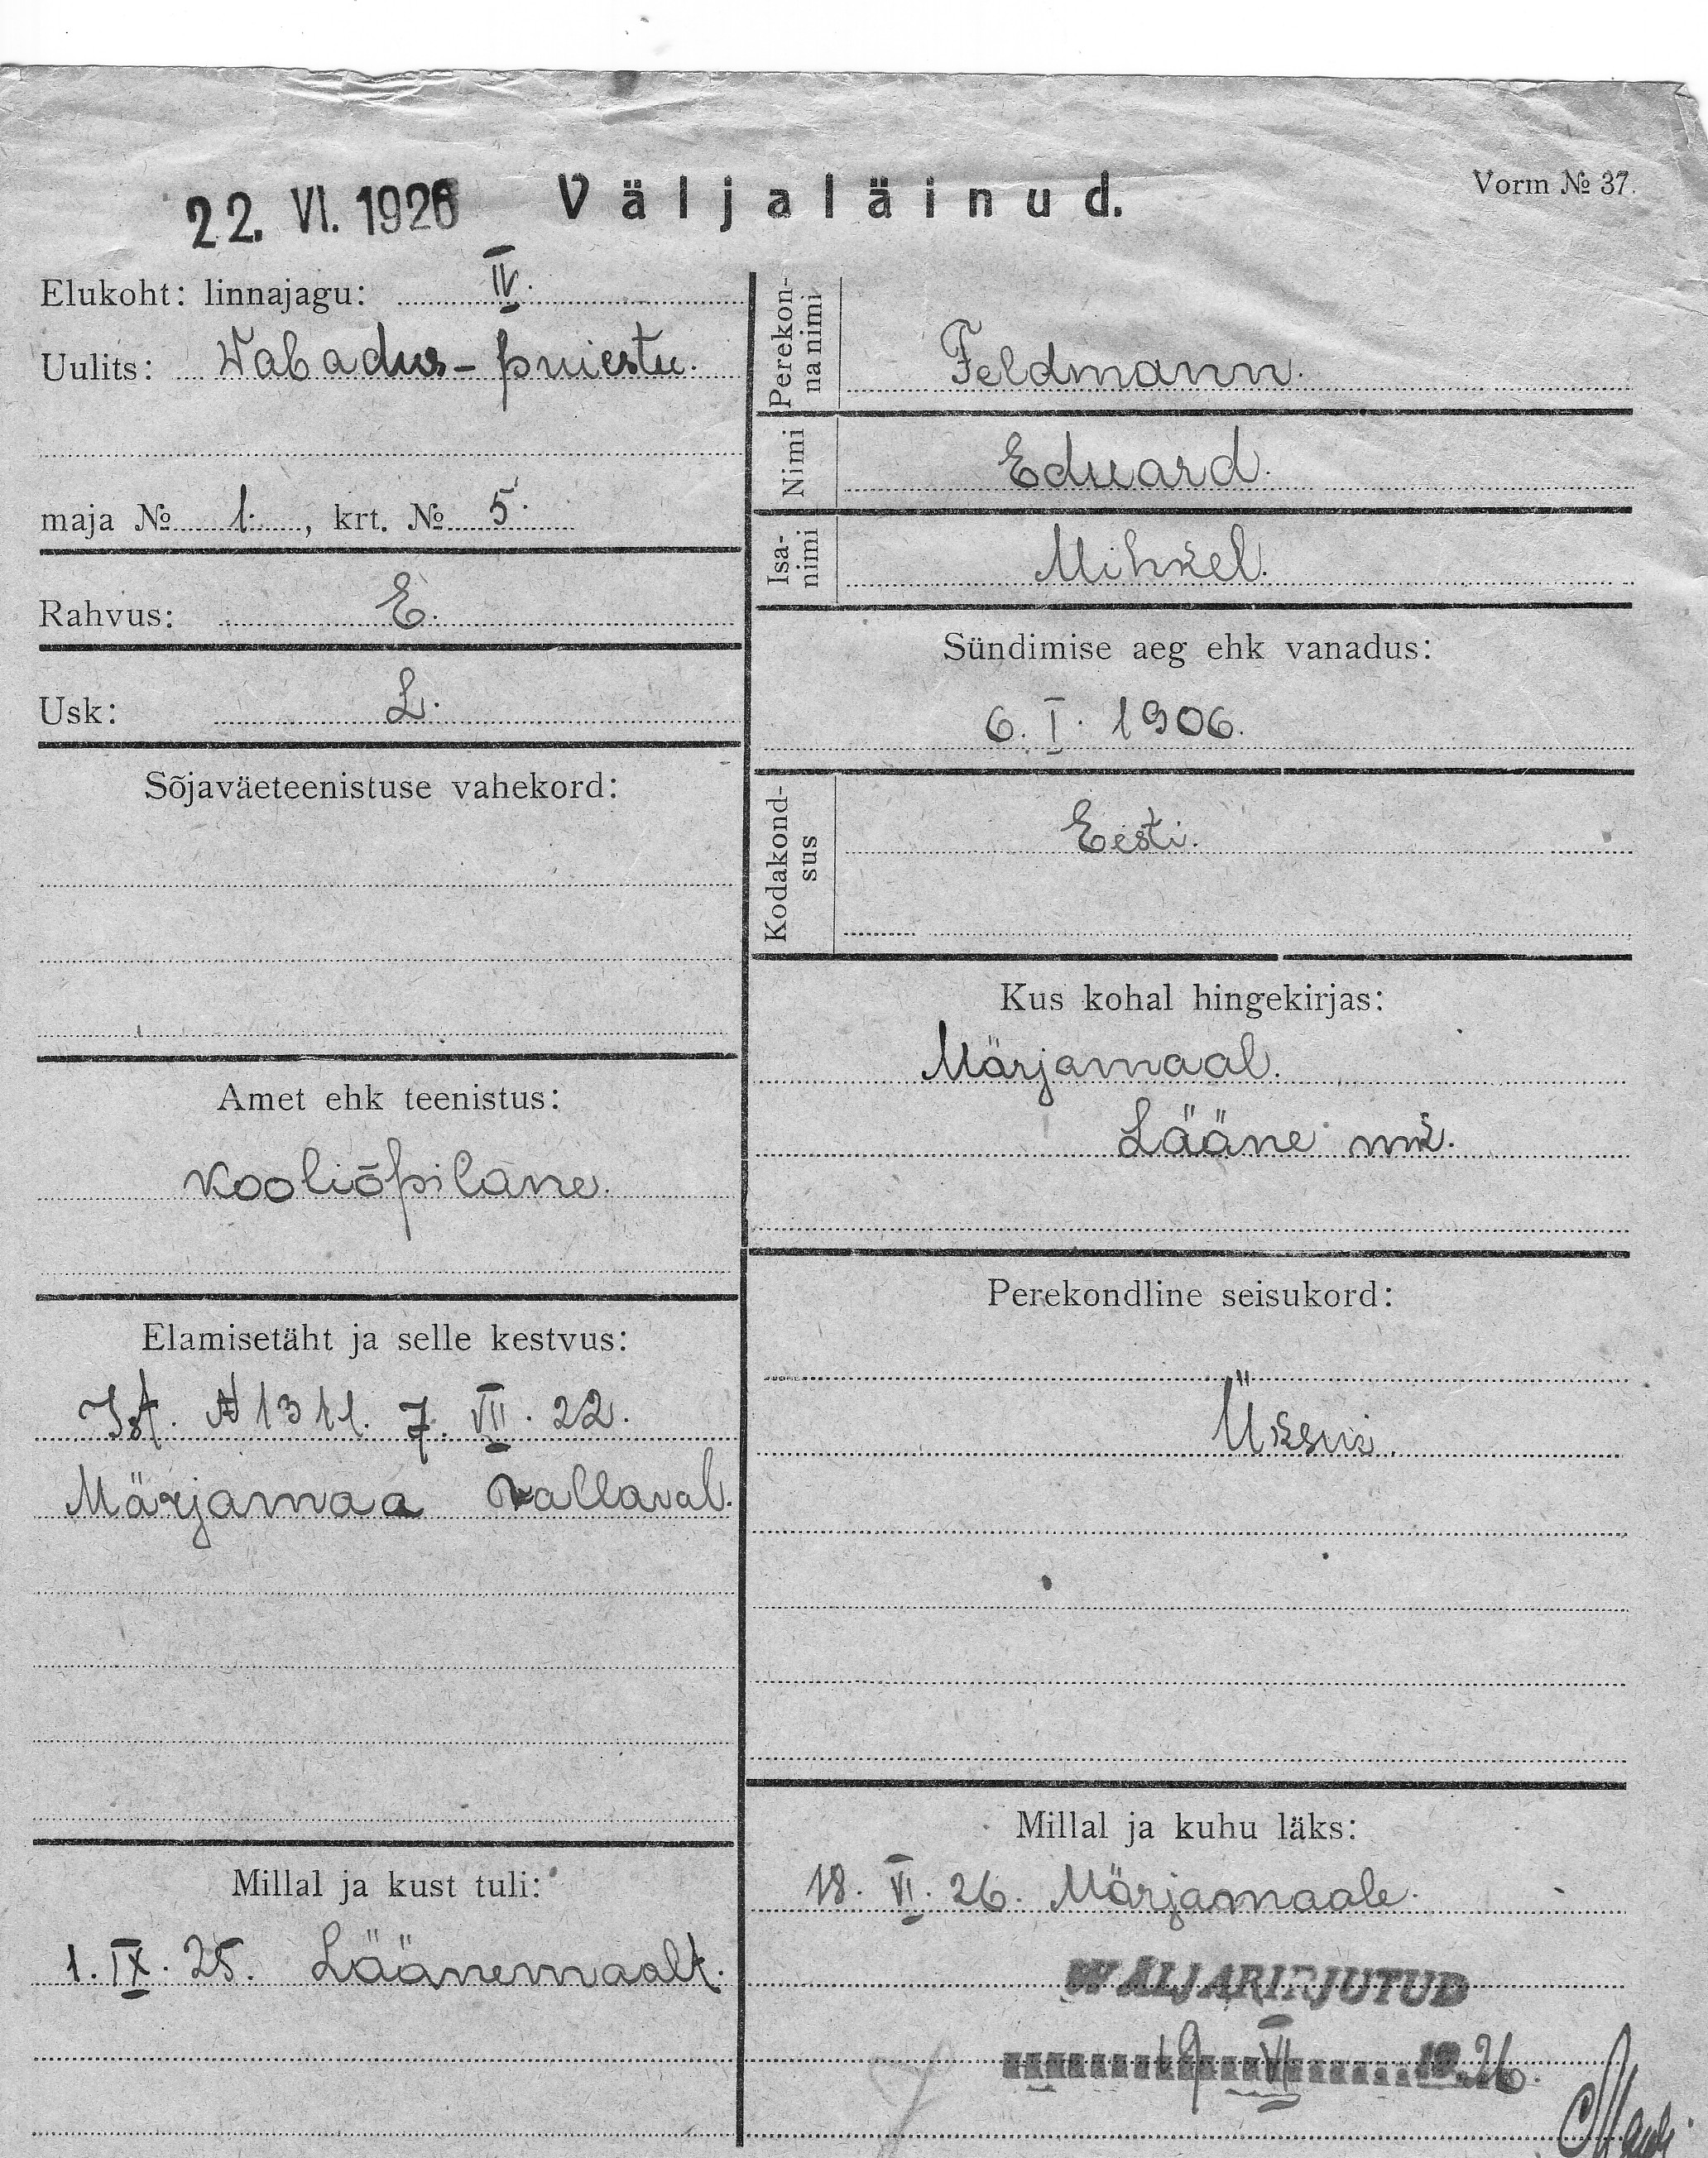 22. VI. 1926 Väljaläinud. Vorm № 37.
Elukoht: linnajagu: IV.
Uulits: Wabadus-puiestee.
maja № 1., krt. № 5.
Rahvus: E.
Usk: L.
Sõjaväeteenistuse vahekord:
Amet ehk teenistus:
Kooliõpilane.
Elamisetäht ja selle kestvus:
Ist. № 1311. 7. VII. 22.
Märjamaa vallaval.
Millal ja kust tuli:
1. IX. 25. Läänemaalt.
Perekonnanimi Feldmann.
Nimi Eduard.
Isa-nimi Mihkel.
Sündimise aeg ehk vanadus:
6. I. 1906.
Kodakond-sus Eesti.
Kus kohal hingekirjas:
Märjamaal.
Lääne mk.
Perekondline seisukord:
Üksik.
Millal ja kuhu läks:
18. VI. 26. Märjamaale.
WÄLJAKIRJUTUD
19 VI 19.26.